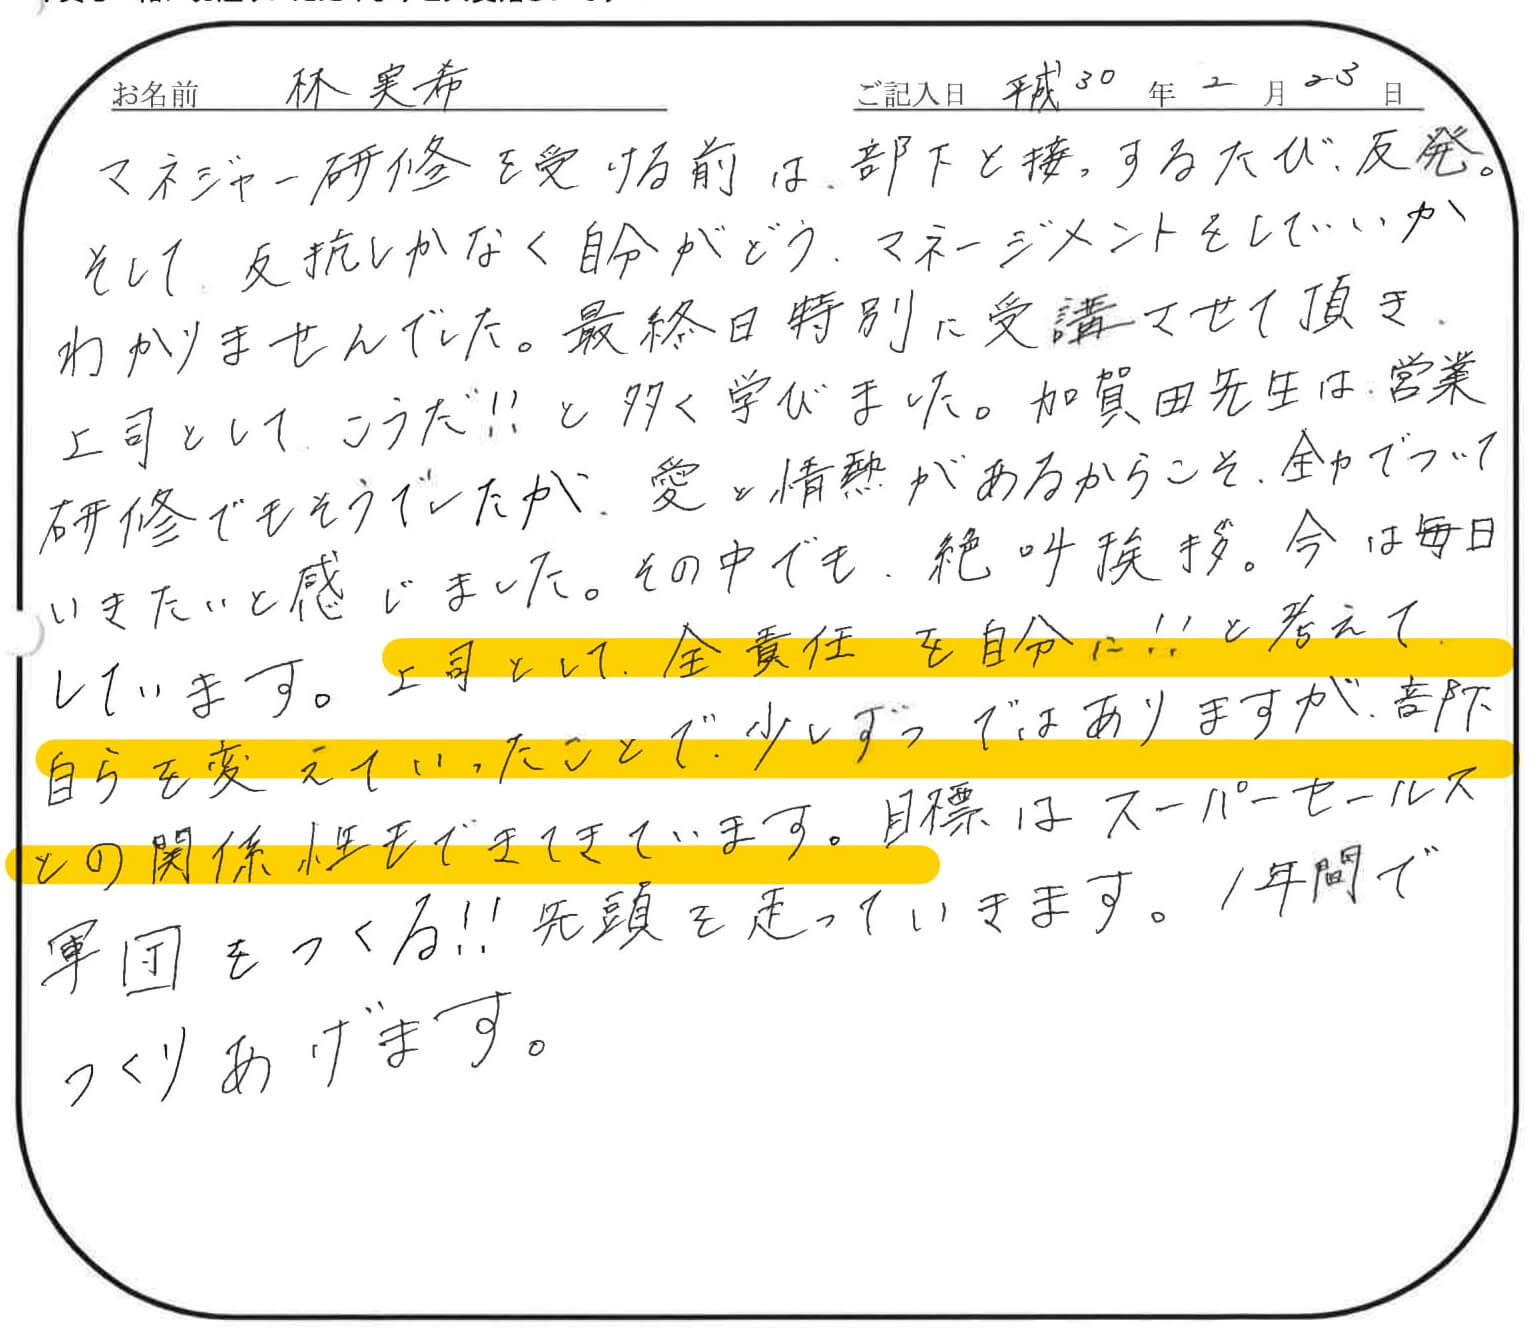 お名前 林 実希 ご記入日 平成30年2月23日
マネジャー研修を受ける前は、部下と接っするたび、反発。
そして、反抗しかなく自分がどう、マネージメントをしていいか
わかりませんでした。最終日特別に受講させて頂き、
上司として、こうだ!!と多く学びました。加賀田先生は、営業
研修でもそうでしたが、愛と情熱があるからこそ、全力でついて
いきたいと感じました。その中でも、絶叫挨拶。今は毎日
しています。上司として、全責任を自分に!!と考えて、
自らを変えていったことで、少しずつではありますが、部下
との関係性もできてきています。目標はスーパーセールス
軍団をつくる!!先頭を走っていきます。1年間で
つくりあげます。